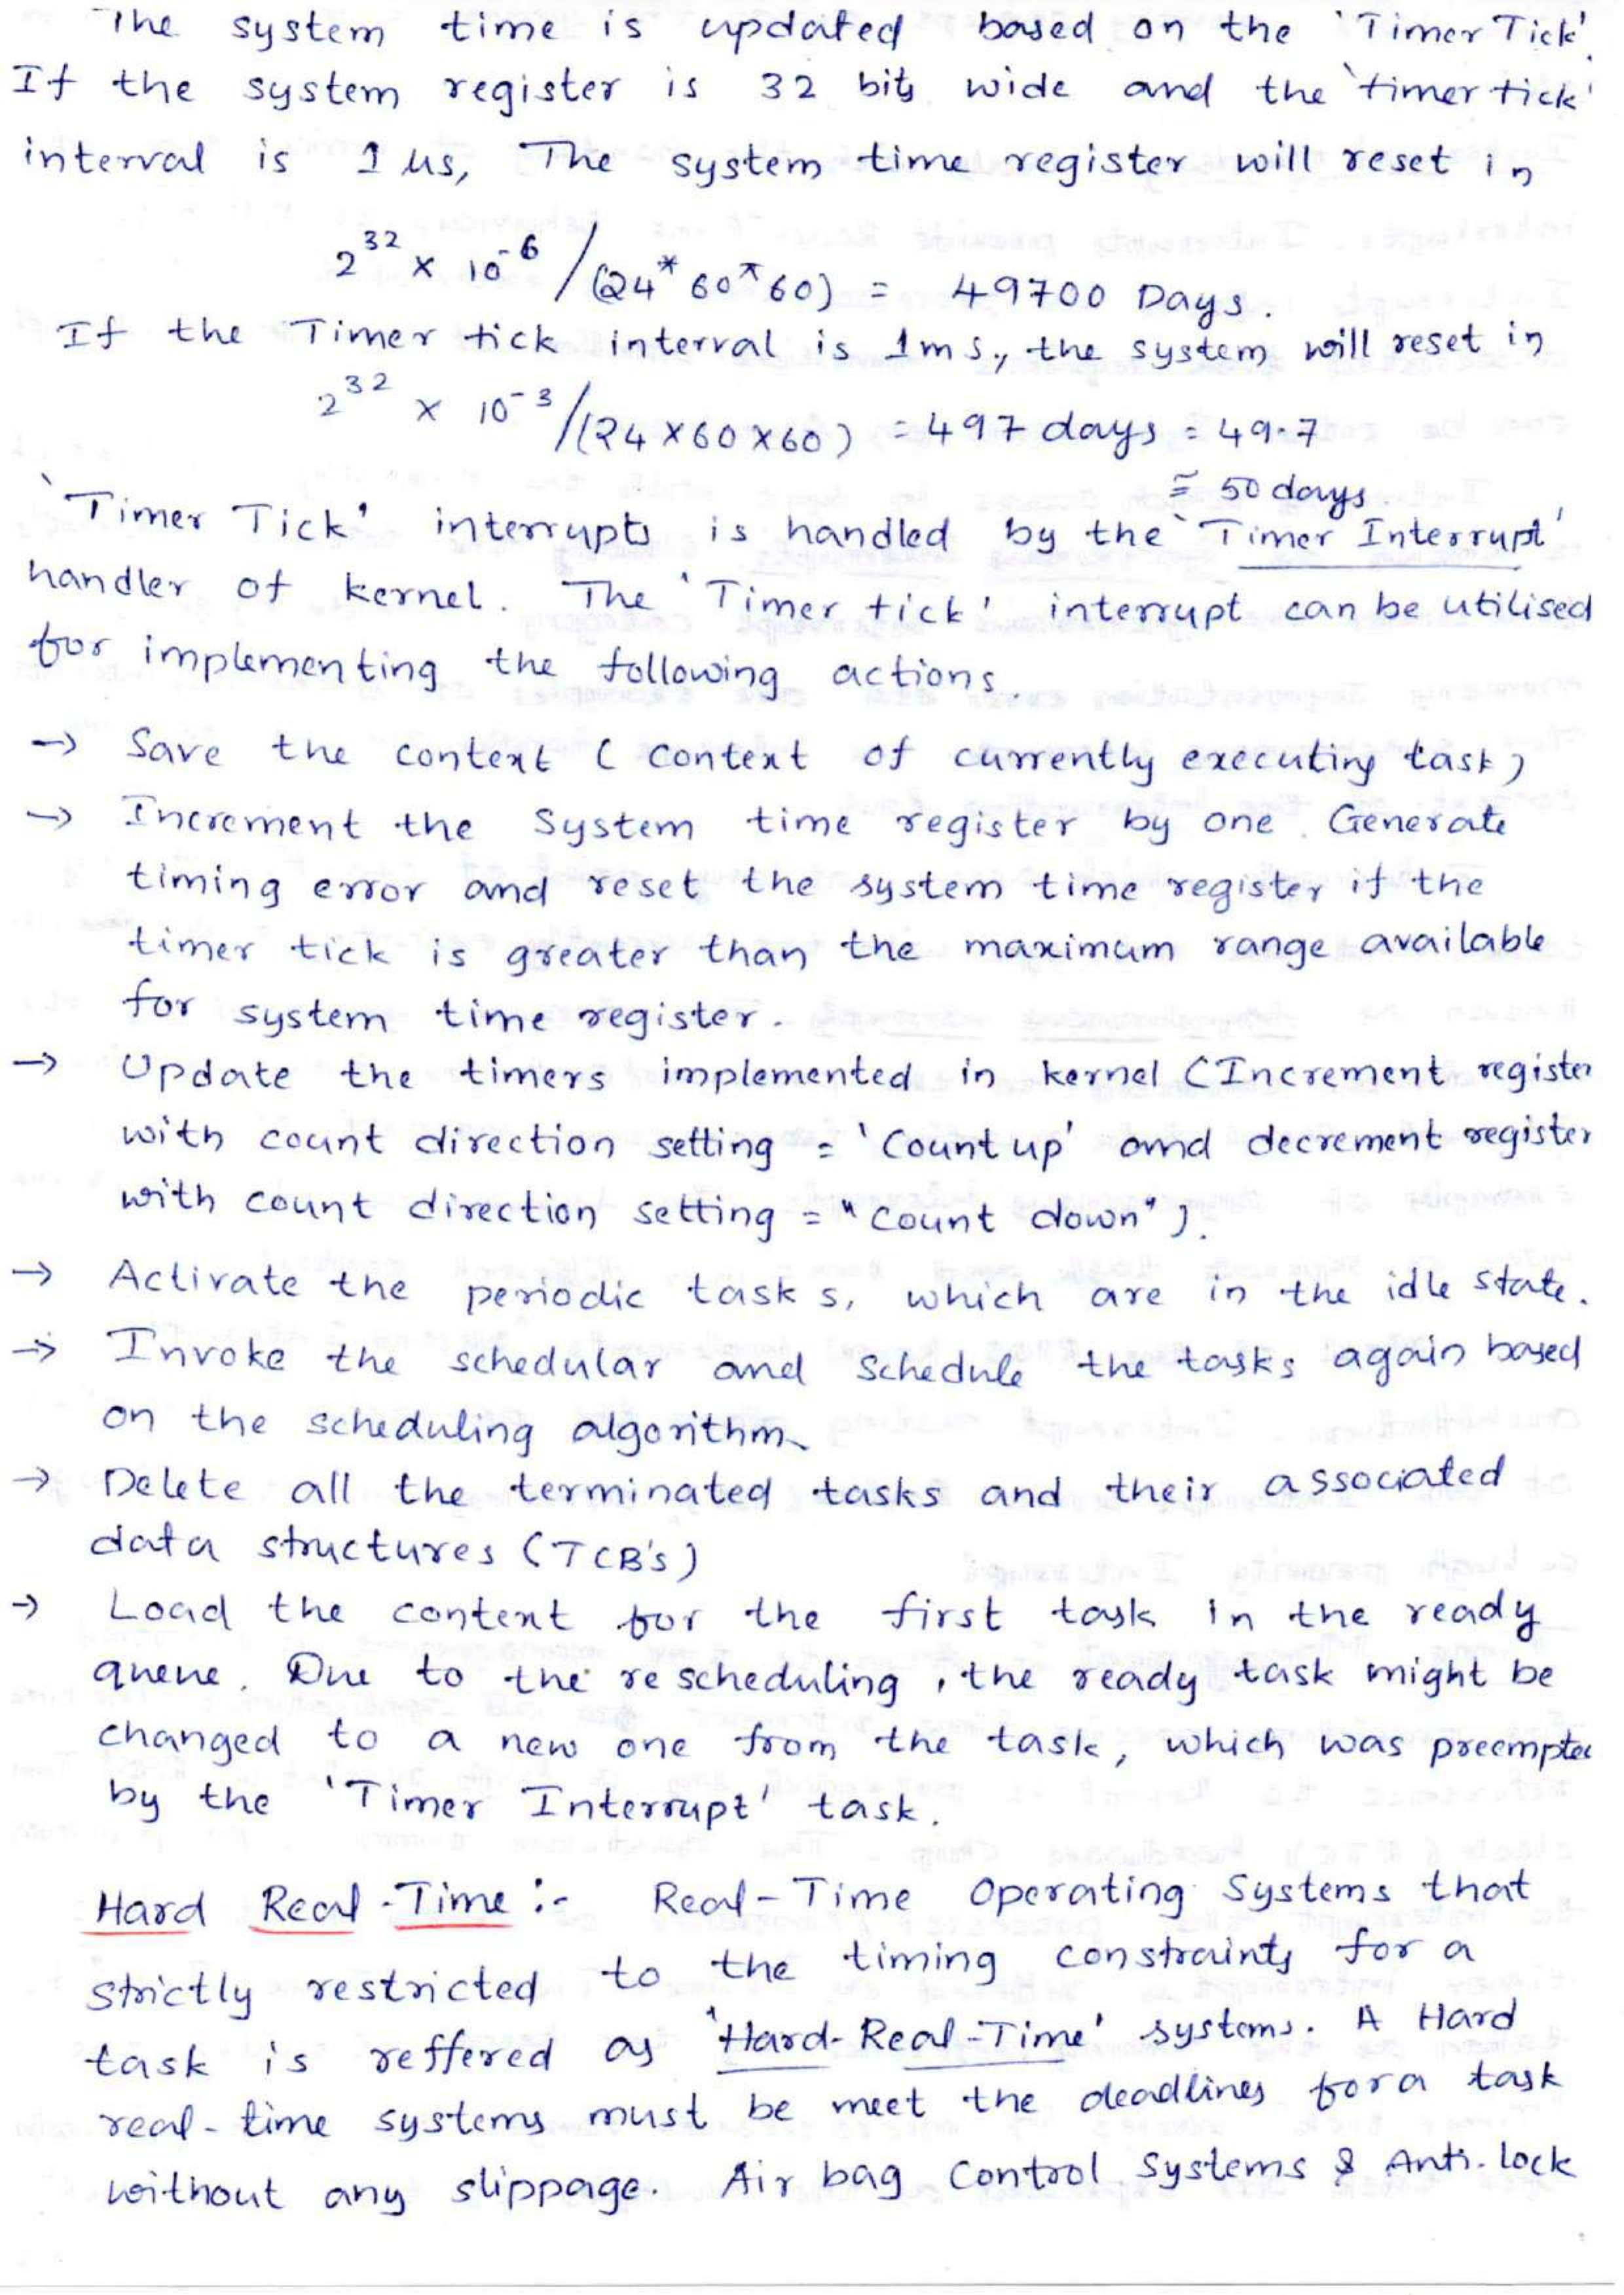 The system time is updated based on the 'Timer Tick'.
If the system register is 32 bits wide and the 'timer tick'
interval is 1 µs, The system time register will reset in
2^32 x 10^-6 / (24* 60* 60) = 49700 Days.
If the Timer tick interval is 1ms, the system will reset in
2^32 x 10^-3 / (24 x 60 x 60) = 497 days = 49.7
≅ 50 days.
'Timer Tick' interrupts is handled by the 'Timer Interrupt'
handler of kernel. The 'Timer tick' interrupt can be utilised
for implementing the following actions.
→ Save the context (context of currently executing task)
→ Increment the System time register by one. Generate
timing error and reset the system time register if the
timer tick is greater than the maximum range available
for system time register.
→ Update the timers implemented in kernel (Increment register
with count direction setting = 'Count up' and decrement register
with count direction setting = "count down").
→ Activate the periodic tasks, which are in the idle state.
→ Invoke the schedular and Schedule the tasks again based
on the scheduling algorithm.
→ Delete all the terminated tasks and their associated
data structures (TCB's)
→ Load the context for the first task in the ready
queue. Due to the rescheduling, the ready task might be
changed to a new one from the task, which was preempted
by the 'Timer Interrupt' task.
Hard Real-Time :- Real-Time Operating Systems that
strictly restricted to the timing constraints for a
task is reffered as 'Hard-Real-Time' systems. A Hard
real-time systems must be meet the deadlines for a task
without any slippage. Air bag Control Systems & Anti-lock